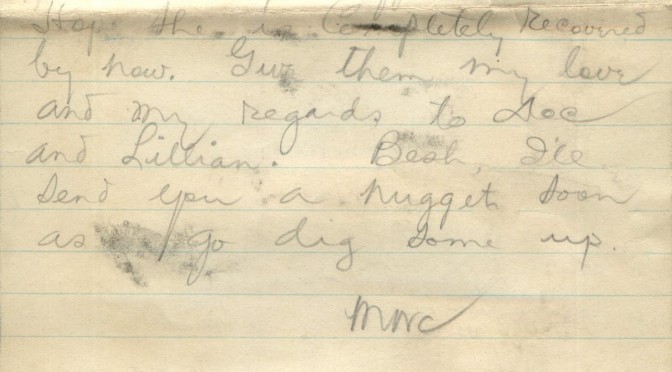 Hope she is Completely recovered
by now. Give them my love
and my regards to Doc
and Lillian. Besh, I'll
send you a nugget soon
as I go dig some up.